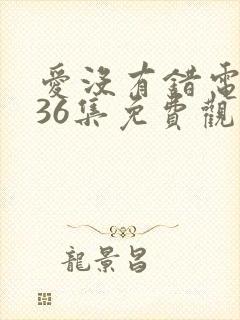 愛沒有錯電
36集免費觀
龍景昌